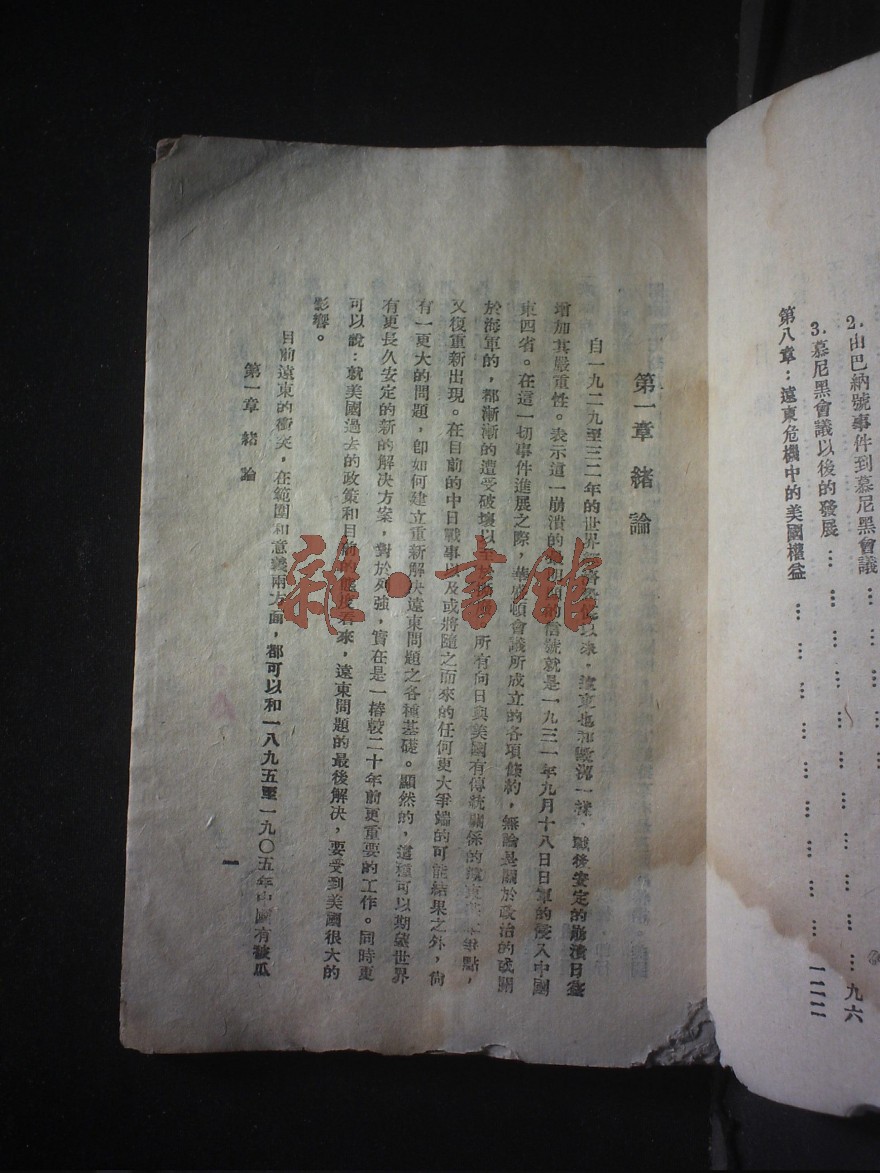 2.由巴納號事件到慕尼黑會議 … … … … … … … 九六
3.慕尼黑會議以後的發展 … … … … … …
第八章：遠東危機中的美國權益 … … … … … … 一二二
第一章 緒論
自一九二九至三二年的世界 以來，遠東也和歐洲一樣、戰後安定的崩潰日益
增加其嚴重性。表示這一崩潰的 的信號就是一九三一年九月十八日日軍的侵入中國
東四省。在這一切事件進展之際，華盛頓會議所成立的各項條約，無論是關於政治的或關
於海軍的，都漸漸的遭受破壞以至於 所有向日與美國有傳統關係的 爭點，
又復重新出現。在目前的中日戰事以及或將隨之而來的任何更大爭端的可能結果之外，尚
有一更大的問題，卽如何建立重新解決遠東問題之各種基礎。顯然的，這種可以期望世界
有更長久安定的新的解決方案，對於列強，實在是一樁較二十年前更重要的工作。同時更
可以說：就美國過去的政策和目前的態度看來，遠東問題的最後解決，要受到美國很大的
影響。
目前遠東的衝突，在範圍和意義兩方面，都可以和一八九五至一九〇五年中國有被瓜
第一章 緒論
一
雜·書館